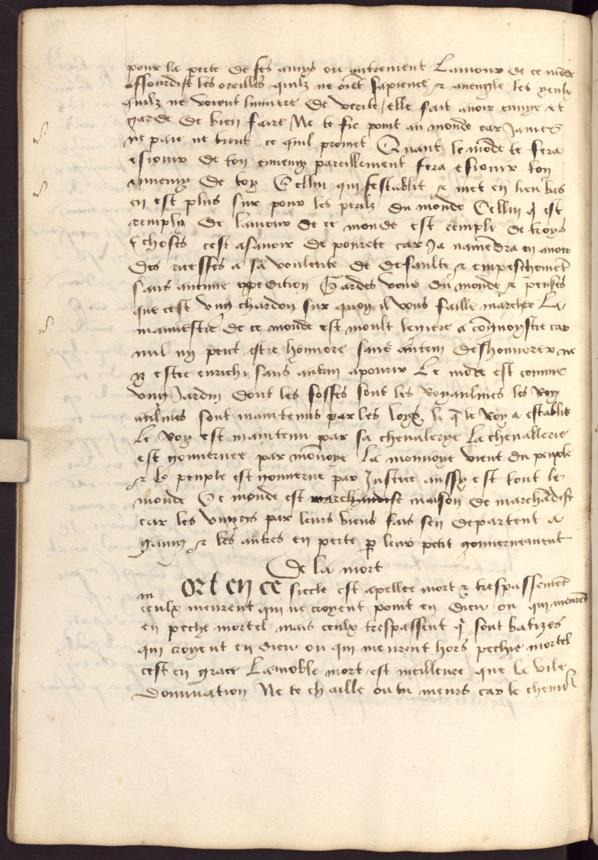 pour la perte de ses amys ou autrement Lamour de ce mõde
assourdist les oreilles quilz ne oiẽt sapience & aveugle les yeulx
quilz ne voient lumiere de verite / elle fait avoir envye et
garde de bien faire Ne te fie point au monde car Jamès
ne paie ne tient ce quil promet Quant le mõde te fera
esiouir de ton ennemy pareillement fera esiouir ton
ennemy de toy Celluy qui sestablit & met en lieu bas
en est plus sur pour les perilz du monde Celluy q̃ est
remply de lamour de ce monde est remply de troys
choses cest asavoir de povrete car Ja navendra en avoir
des richesses a sa voulente de deffaulte & empeschemẽt
sans aucune expedition Gardes vous du monde & penses
que cest ung chardon sur quoy il vous faille marcher La
maniestie de ce monde est moult legiere a congnoistre car
nul ny peut estre honnore sans autem deshonnorer ne
estre enrichi sans autem apourir Le mõde est comme
ung Jardin dont les fosses sont les royaulmes les Roy
aulmes sont maintenus par les loys le q̃ le Roy a establit
Le Roy est maintenu par sa chevalerye La chevallerie
est gouvernee par mõnoye La monnoye vient du peuple
& le peuple est gouverne par Justice aussy est tout le
monde Ce monde est maison de marchãdise
car les ungs par leurs biens fais sen departent a
gaing & les autres en perte p̱ leur petit gouvernement
De la mort
m ort en ce siecle est apellee mort & trespassement
ceulx meurent qui ne croyent point en dieu ou qui meurẽt
en peche mortel mais ceulx trespassent q̃ sont batizes
qui croyent en dieu ou qui meurent hors pechie mortel
cest en grace La noble mort est meilleure que le vile
domination Ne te chaille ou tu meurs car le chemi